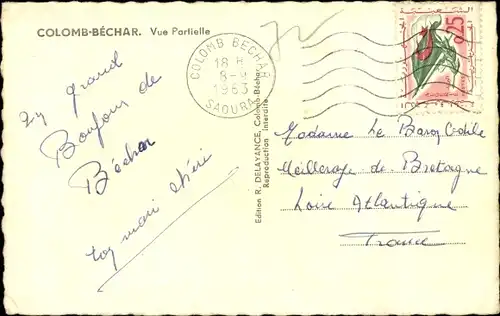 COLOMB-BÉCHAR. Vue Partielle
COLOMB BECHAR
18 H
8-
1963
SAOURA
0,25
Un grand
Bonjour de
Béchar
ton mari chéri
Edition R. DELAYANCE, Colomb-Béchar
Reproduction Interdite
Madame Le Barcq Odile
Meilleraye de Bretagne
Loire Atlantique
France